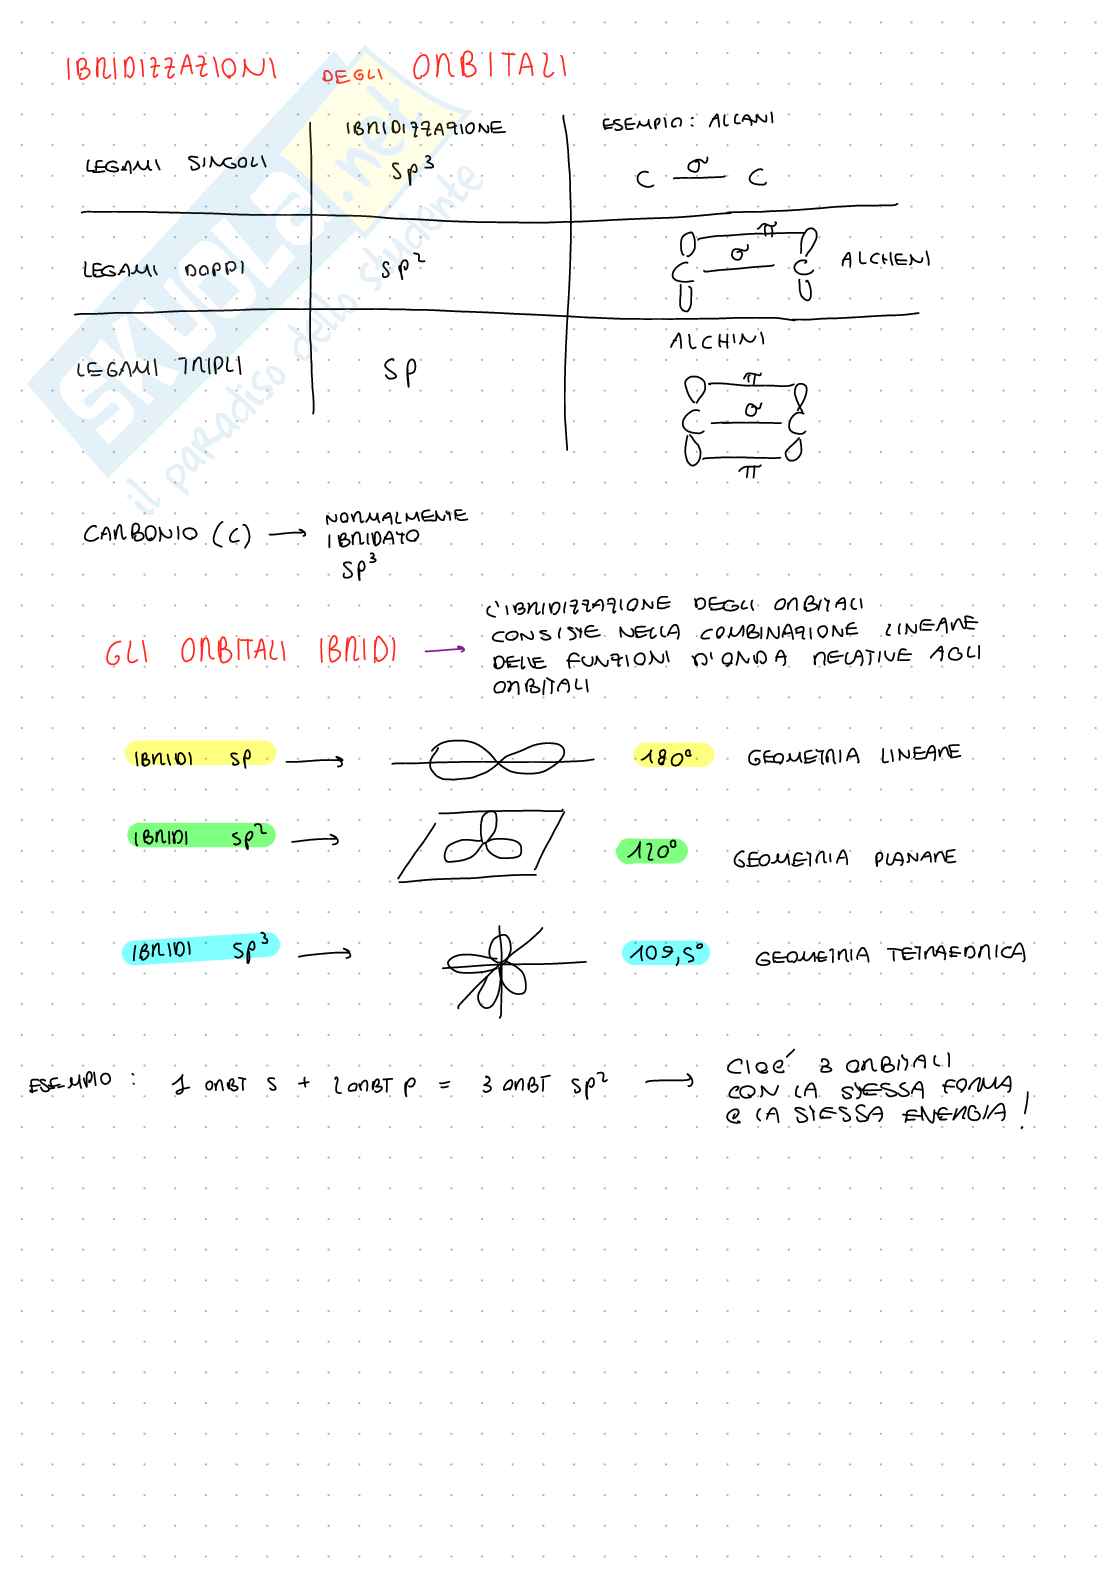 IBRIDIZZAZIONI DEGLI ORBITALI
IBRIDIZZAZIONE
ESEMPIO: ALCANI
LEGAMI SINGOLI
sp³
C σ C
LEGAMI DOPPI
sp²
π
σ
C C
ALCHENI
LEGAMI TRIPLI
sp
ALCHINI
π
C σ C
π
SKUOLA.net
il paradiso dello studente
CARBONIO (C) → NORMALMENTE
IBRIDATO
sp³
GLI ORBITALI IBRIDI →
L'IBRIDIZZAZIONE DEGLI ORBITALI
CONSISTE NELLA COMBINAZIONE LINEARE
DELLE FUNZIONI D'ONDA RELATIVE AGLI
ORBITALI
IBRIDI sp → 180° GEOMETRIA LINEARE
IBRIDI sp² → 120° GEOMETRIA PLANARE
IBRIDI sp³ → 109,5° GEOMETRIA TETRAEDRICA
ESEMPIO: 1 ORBT S + 2 ORBT P = 3 ORBT sp² →
CIOE' 3 ORBITALI
CON LA STESSA FORMA
E LA STESSA ENERGIA!